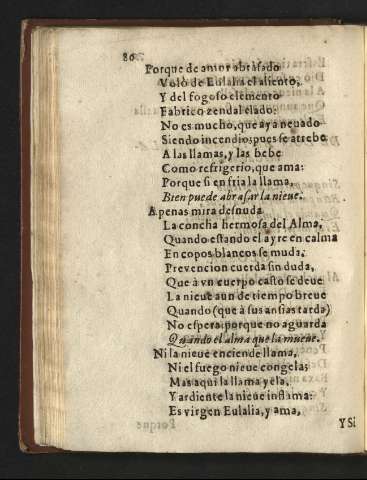 80
Porque de amor abrasado
Volò de Eulalia el aliento,
Y del fogoso elemento
Fabricò zendal elado:
No es mucho, que aya neuado
Siendo incendio; pues se atrebe
A las llamas, y las bebe
Como refrigerio, que ama:
Porque si enfria la llama,
Bien puede abrasar la nieue.
Apenas mira desnuda
La concha hermosa del Alma,
Quando estando el ayre en calma
En copos blancos se muda.
Preuencion cuerda sin duda,
Que à vn cuerpo casto se deue
La nieue aun de tiempo breue
Quando (que à sus ansias tarda)
No espera porque no aguarda
Quando el alma que la mueue.
Ni la nieue enciende llama,
Ni el fuego nieue congela;
Mas aqui la llama yela,
Y ardiente la nieue inflama:
Es virgen Eulalia, y ama,
Y Si